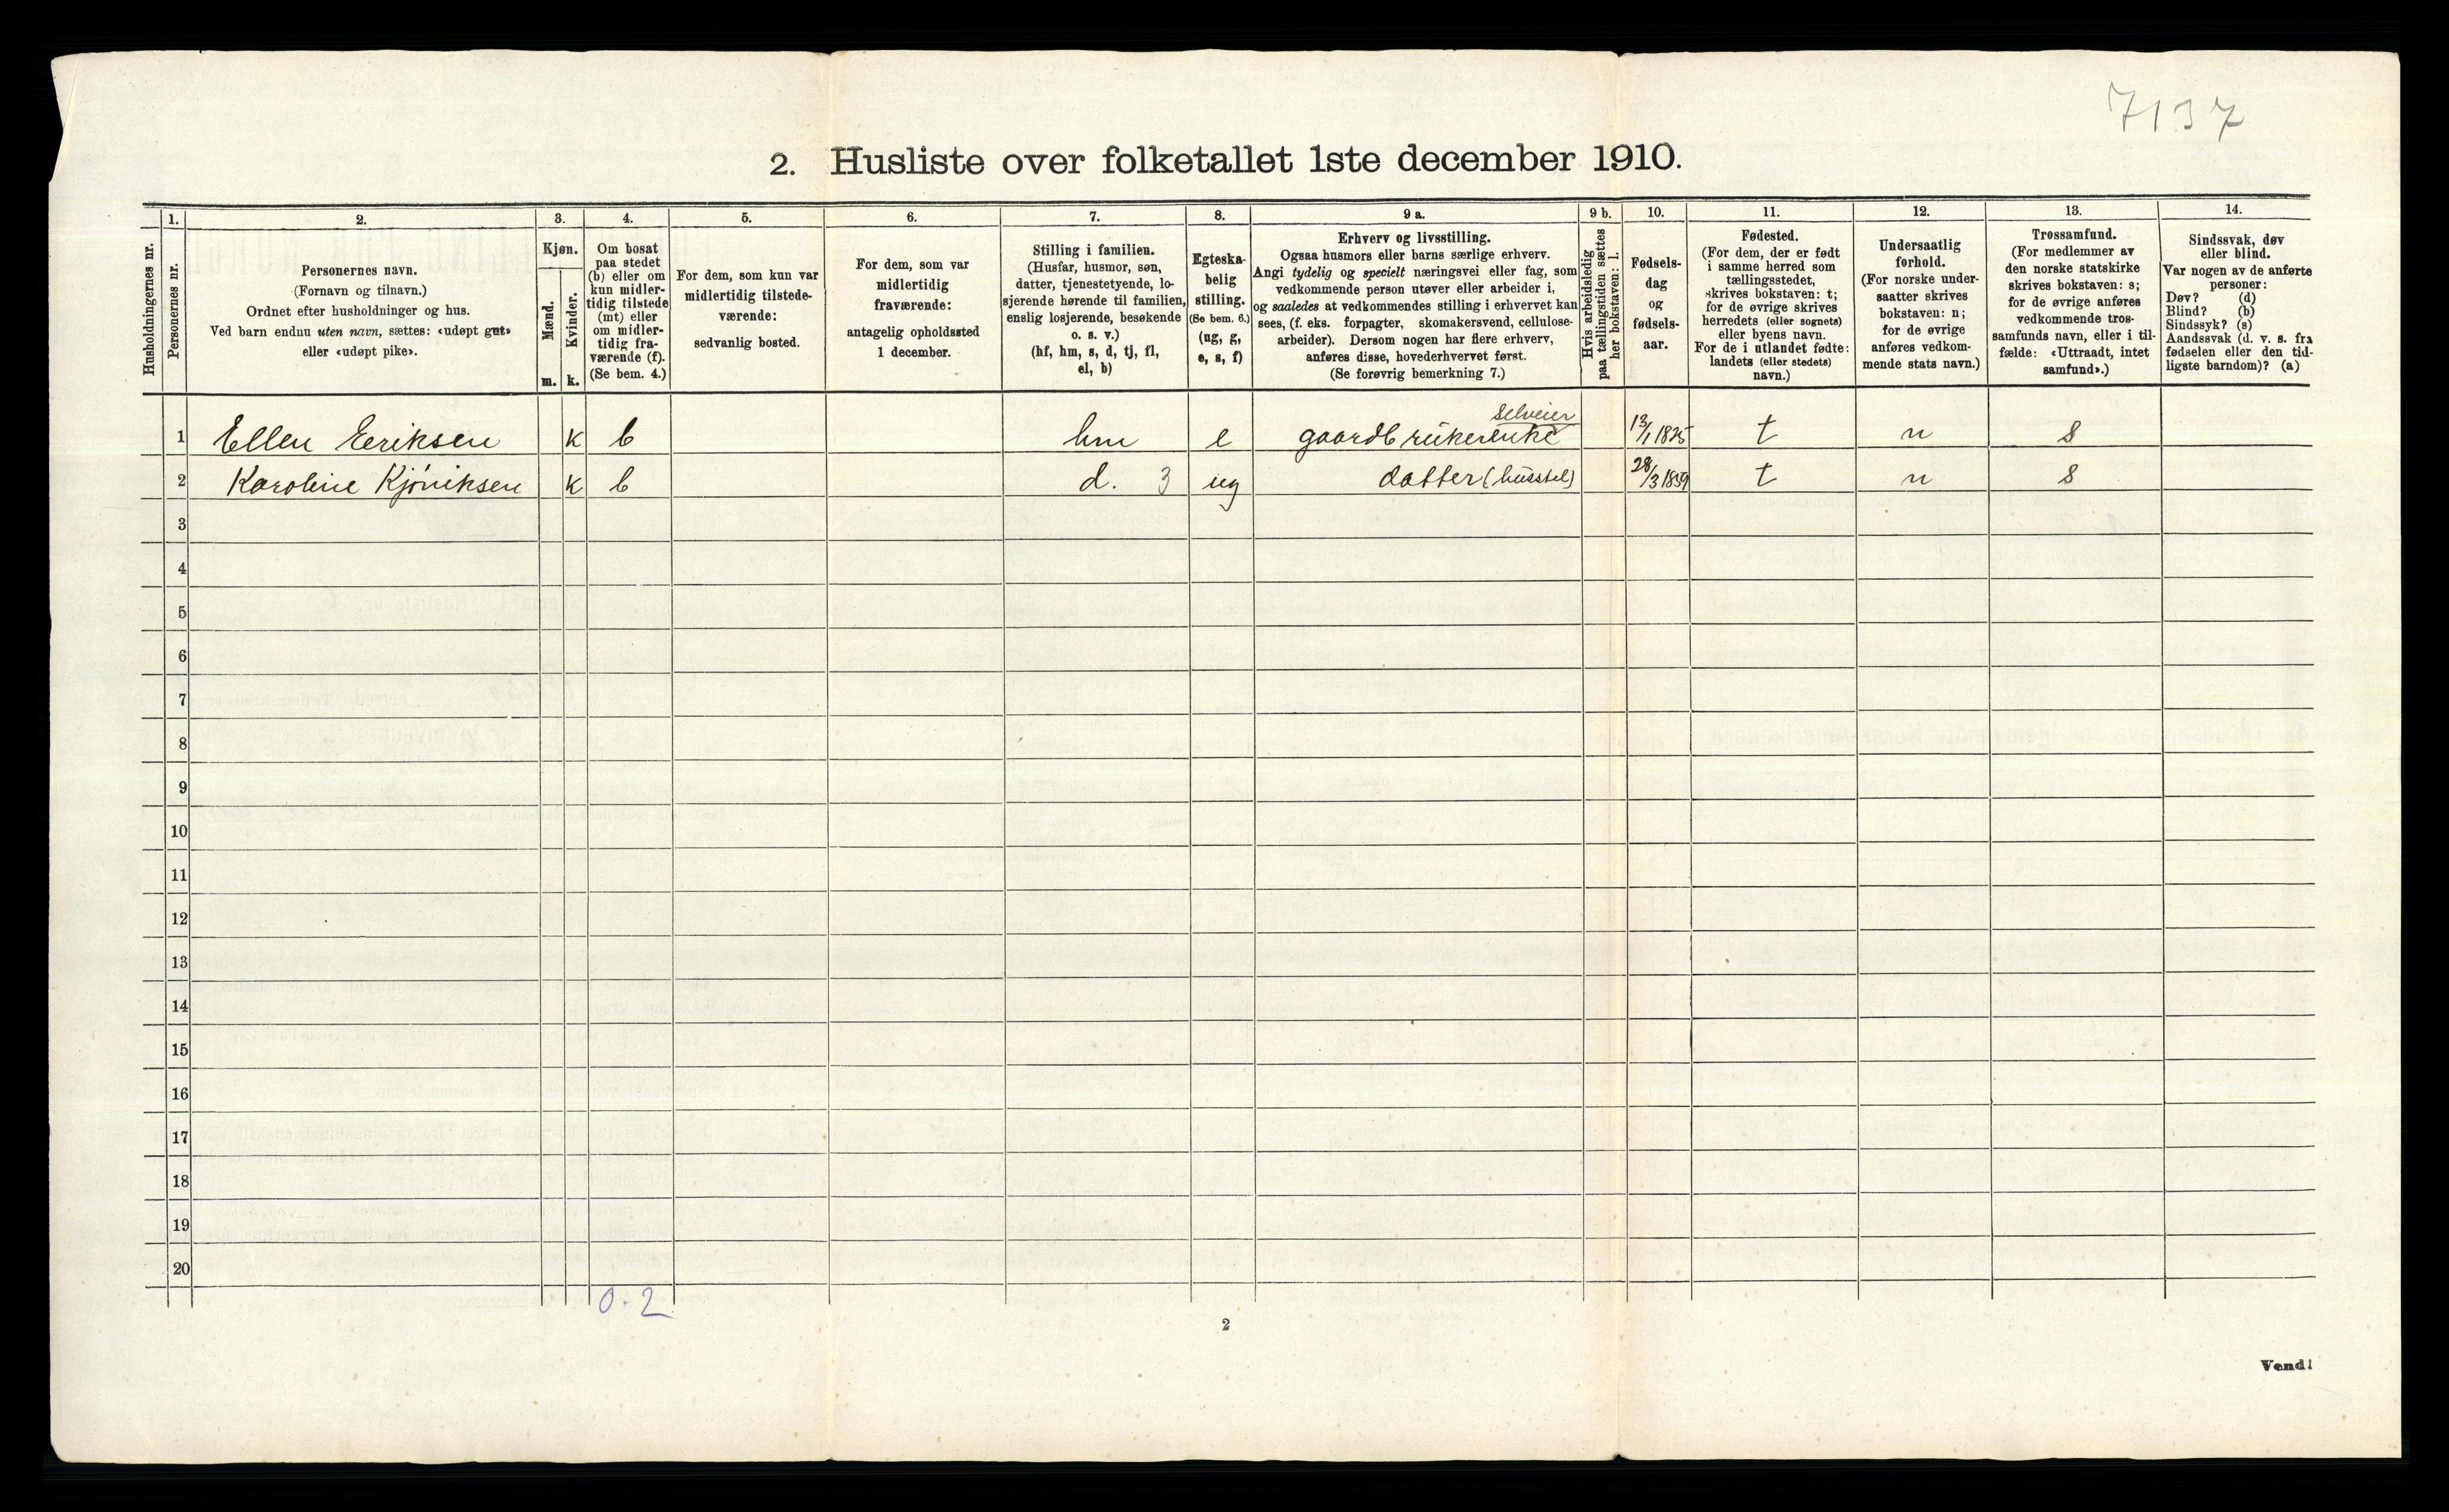 7137
2. Husliste over folketallet 1ste december 1910.
Husholdningernes nr.
1.
Personernes nr.
2.
Personernes navn.
(Fornavn og tilnavn.)
Ordnet efter husholdninger og hus.
Ved barn endnu uten navn, sættes: «udøpt gut»
eller «udøpt pike».
3.
Kjøn.
Mænd.
m.
Kvinder.
k.
4.
Om bosat
paa stedet
(b) eller om
kun midler-
tidig tilstede
(mt) eller
om midler-
tidig fra-
værende (f).
(Se bem. 4.)
5.
For dem, som kun var
midlertidig tilstede-
værende:
sedvanlig bosted.
6.
For dem, som var
midlertidig
fraværende:
antagelig opholdssted
1 december.
7.
Stilling i familien.
(Husfar, husmor, søn,
datter, tjenestetyende, lo-
sjerende hørende til familien,
enslig losjerende, besøkende
o. s. v.)
(hf, hm, s, d, tj, fl,
el, b)
8.
Egteska-
belig
stilling.
(Se bem. 6.)
(ug, g,
e, s, f)
9 a.
Erhverv og livsstilling.
Ogsaa husmors eller barns særlige erhverv.
Angi tydelig og specielt næringsvei eller fag, som
vedkommende person utøver eller arbeider i,
og saaledes at vedkommendes stilling i erhvervet kan
sees, (f. eks. forpagter, skomakersvend, cellulose-
arbeider). Dersom nogen har flere erhverv,
anføres disse, hovederhvervet først.
(Se forøvrig bemerkning 7.)
9 b.
Hvis arbeidsledig
paa tællingstiden sættes
her bokstaven: l.
10.
Fødsels-
dag
og
fødsels-
aar.
11.
Fødested.
(For dem, der er født
i samme herred som
tællingsstedet,
skrives bokstaven: t;
for de øvrige skrives
herredets (eller sognets)
eller byens navn.
For de i utlandet fødte:
landets (eller stedets)
navn.)
12.
Undersaatlig
forhold.
(For norske under-
saatter skrives
bokstaven: n;
for de øvrige
anføres vedkom-
mende stats navn.)
13.
Trossamfund.
(For medlemmer av
den norske statskirke
skrives bokstaven: s;
for de øvrige anføres
vedkommende tros-
samfunds navn, eller i til-
fælde: «Uttraadt, intet
samfund».)
14.
Sindssvak, døv
eller blind.
Var nogen av de anførte
personer:
Døv? (d)
Blind? (b)
Sindssyk? (s)
Aandssvak (d. v. s. fra
fødselen eller den tid-
ligste barndom)? (a)
selveier
1 Ellen Eeriksen k b hm e gaardbrükerenke 13/1 1825 t n s
2 Karoline Kjöniksen k b d. 3 ug datter (hüsstel) 28/3 1859 t n s
3
4
5
6
7
8
9
10
11
12
13
14
15
16
17
18
19
20
0-2
2
Vend!